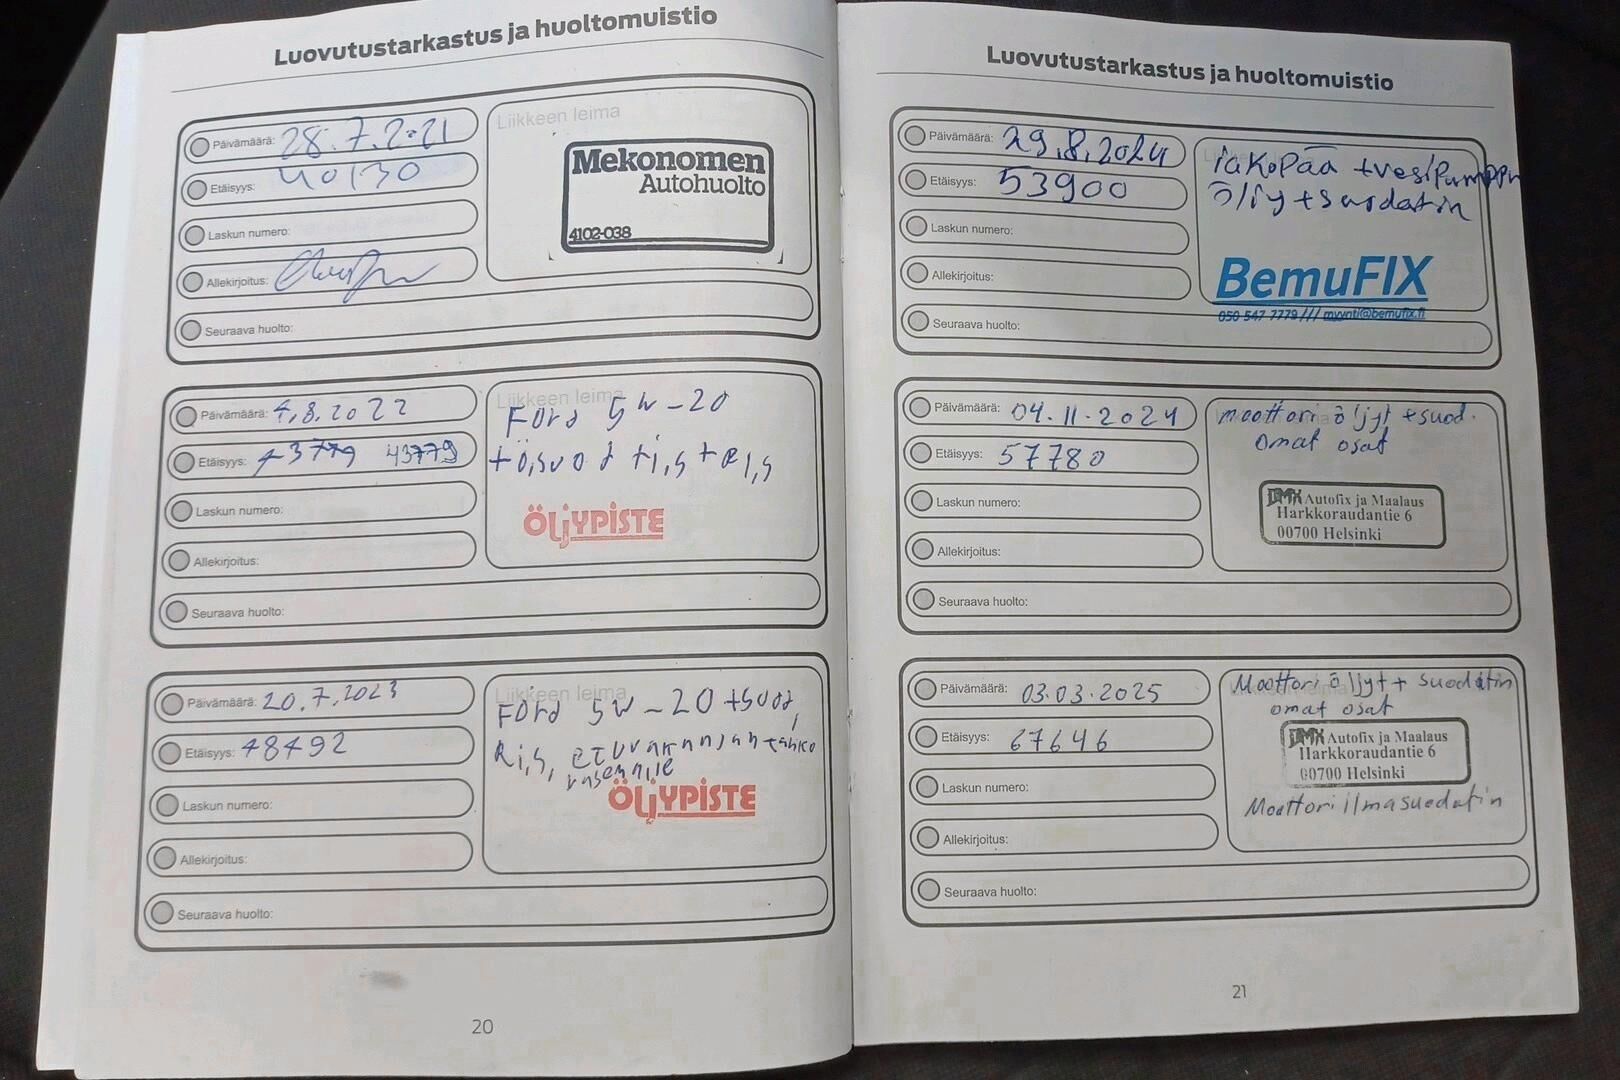 Luovutustarkastus ja huoltomuistio
Päivämäärä: 28.7.2021
Etäisyys: 40130
Laskun numero:
Allekirjoitus:
Seuraava huolto:
Liikkeen leima
Mekonomen
Autohuolto
4102-038
Päivämäärä: 4.8.2022
Etäisyys: 43779 43779
Laskun numero:
Allekirjoitus:
Seuraava huolto:
Liikkeen leima
Ford 5W-20
+ö,suod +i,s+R,i,s
ÖLJYPISTE
Päivämäärä: 20.7.2023
Etäisyys: 48492
Laskun numero:
Allekirjoitus:
Seuraava huolto:
Liikkeen leima
Ford 5W-20 +suod,
Ri,s,
ÖLJYPISTE
20
Luovutustarkastus ja huoltomuistio
Päivämäärä: 29.8.2024
Etäisyys: 53900
Laskun numero:
Allekirjoitus:
Seuraava huolto:
jakopää +vesipumppu
öljy+suodatin
BemuFIX
050 547 7779 /// myynti@bemufix.fi
Päivämäärä: 04.11.2024
Etäisyys: 57780
Laskun numero:
Allekirjoitus:
Seuraava huolto:
moottori öljyt +suod.
omat osat
DMX Autofix ja Maalaus
Harkkoraudantie 6
00700 Helsinki
Päivämäärä: 03.03.2025
Etäisyys: 67646
Laskun numero:
Allekirjoitus:
Seuraava huolto:
Moottori öljyt + suodatin
omat osat
DMX Autofix ja Maalaus
Harkkoraudantie 6
00700 Helsinki
Moottori ilmasuodatin
21